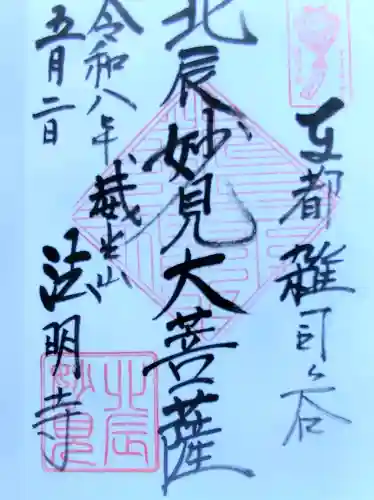 東都 雑司ヶ谷
北辰妙見大菩薩
威光山
法明寺
令和八年
五月二日
北辰
妙見